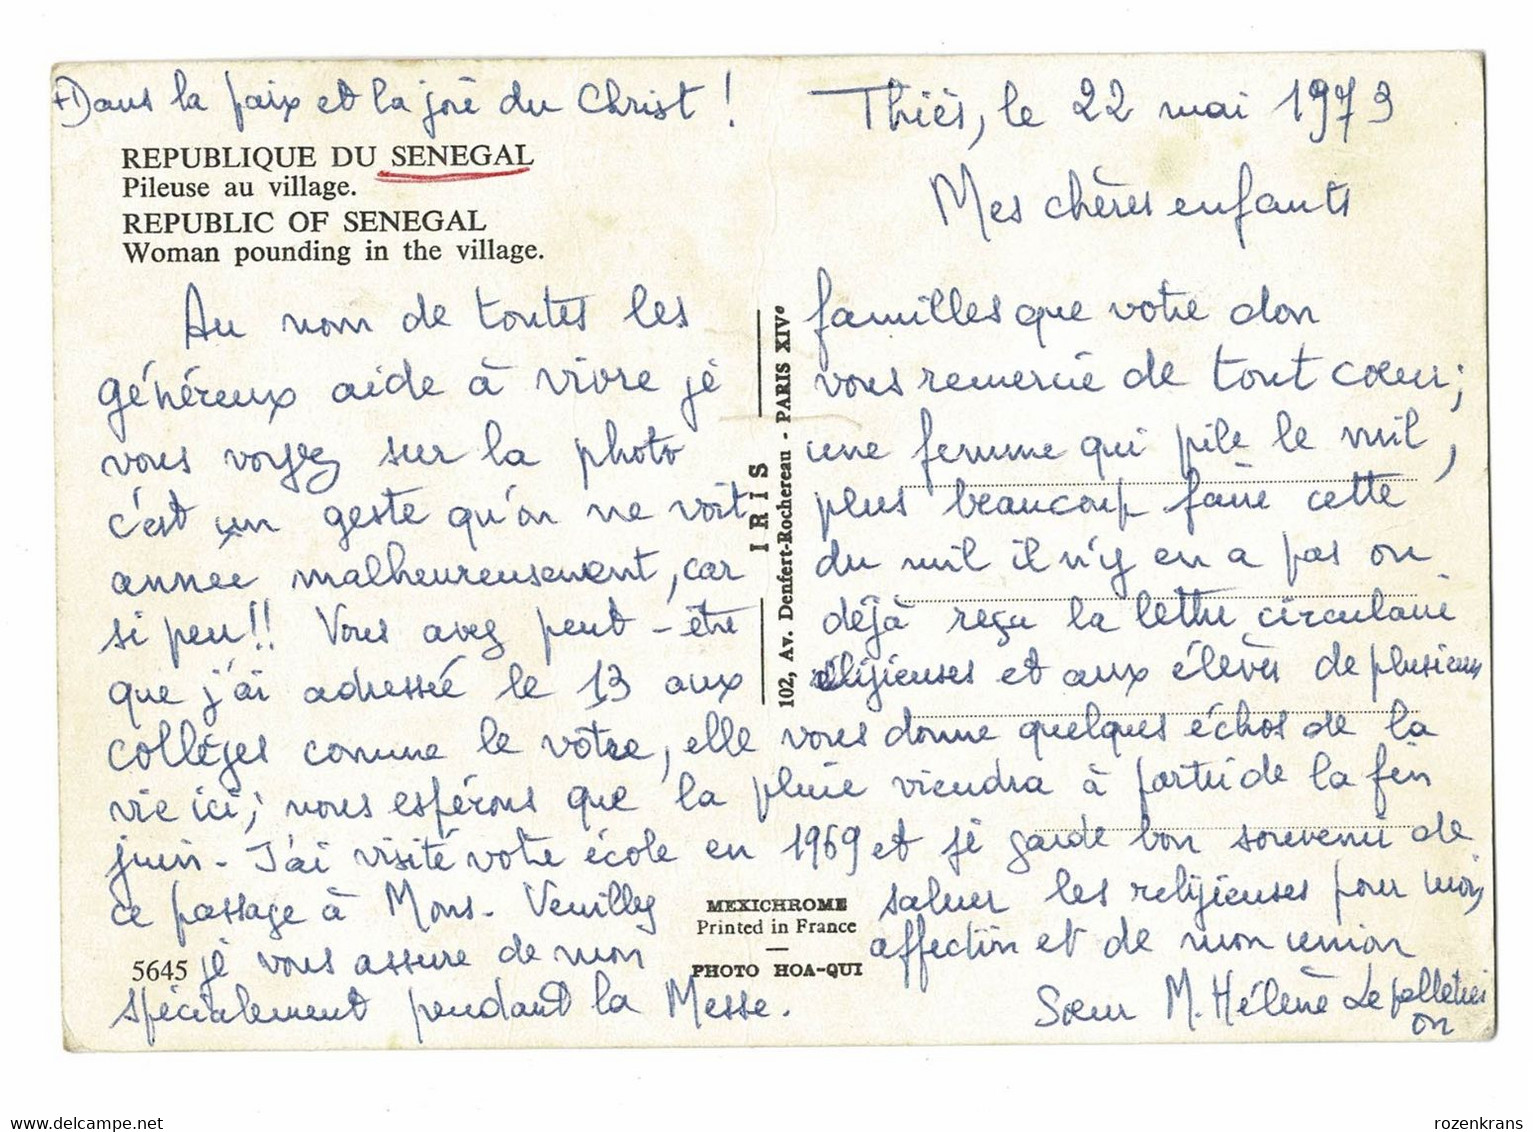 + Dans la paix et la joie du Christ !
Thiès, le 22 mai 1973
REPUBLIQUE DU SENEGAL
Pileuse au village.
REPUBLIC OF SENEGAL
Woman pounding in the village.
Mes chères enfants
Au nom de toutes les familles que votre don
généreux aide à vivre je vous remercie de tout cœur ;
vous voyez sur la photo une femme qui pile le mil,
c'est un geste qu'on ne voit plus beaucoup faire cette
année malheureusement, car du mil il n'y en a pas ou
si peu !! Vous avez peut-être déjà reçu la lettre circulaire
que j'ai adressée le 13 aux religieuses et aux élèves de plusieurs
collèges comme le votre, elle vous donne quelques échos de la
vie ici ; nous espérons que la pluie viendra à partir de la fin
juin - J'ai visité votre école en 1969 et je garde bon souvenir de
ce passage à Mons. Veuillez saluer les religieuses pour moi,
je vous assure de mon affection et de mon union
spécialement pendant la Messe.
Sœur M. Hélène Le pelletier
on
IRIS
102, Av. Denfert-Rochereau - PARIS XIVe
MEXICHROME
Printed in France
—
PHOTO HOA-QUI
5645
rozenkrans